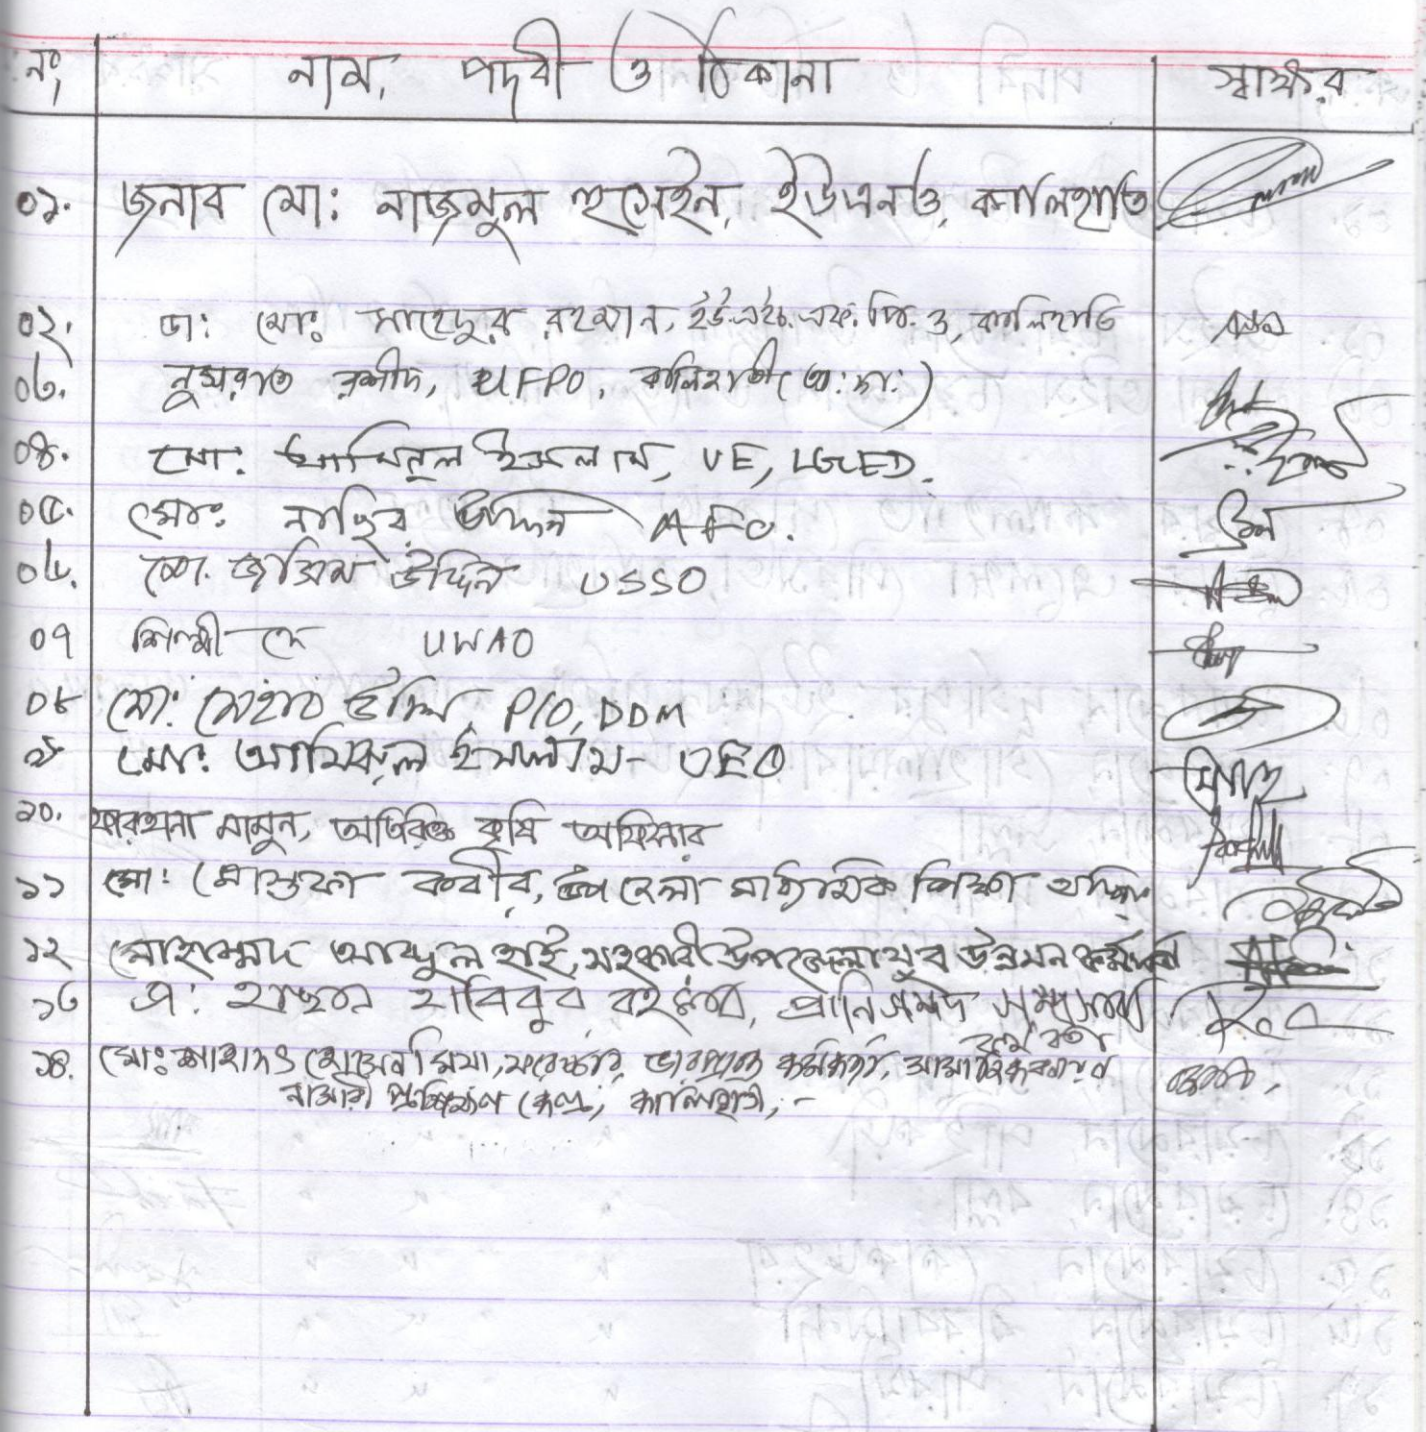 নং, নাম, পদবী ও ঠিকানা স্বাক্ষর
০১. জনাব মো: নাজমুল হুসেইন, ইউএনও, কালিহাতি
০২. ডা: মোঃ সাহেদুর রহমান, ইউ.এইচ.এফ.পি.ও, কালিহাতি
০৩. নুসরাত রশীদ, UFPO, কালিহাতী (অ:দা:)
০৪. মো: আমিনুল ইসলাম, UE, LGED.
০৫. মোঃ নাছির উদ্দিন AFO.
০৬. মো. জসিম উদ্দিন USSO
০৭ শিল্পী দে UWAO
০৮ মো: উদ্দিন, PIO, DDM
০৯ মোঃ ইসলাম - UEO
১০. ফারহানা মামুন, অতিরিক্ত কৃষি অফিসার
১১ মো: মোস্তফা কবীর, উপজেলা মাধ্যমিক শিক্ষা
১২ মোহাম্মদ আব্দুল হাই, সহকারী উপজেলা যুব উন্নয়ন কর্মকর্তা
১৩ হাবিবুর প্রানিসম্পদ সম্প্রসারণ
কর্মকর্তা
১৪. মোঃ হোসেন মিয়া, ফরেস্টার, ভারপ্রাপ্ত কর্মকর্তা,
নার্সারী প্রশিক্ষণ কেন্দ্র, কালিহাতী, -